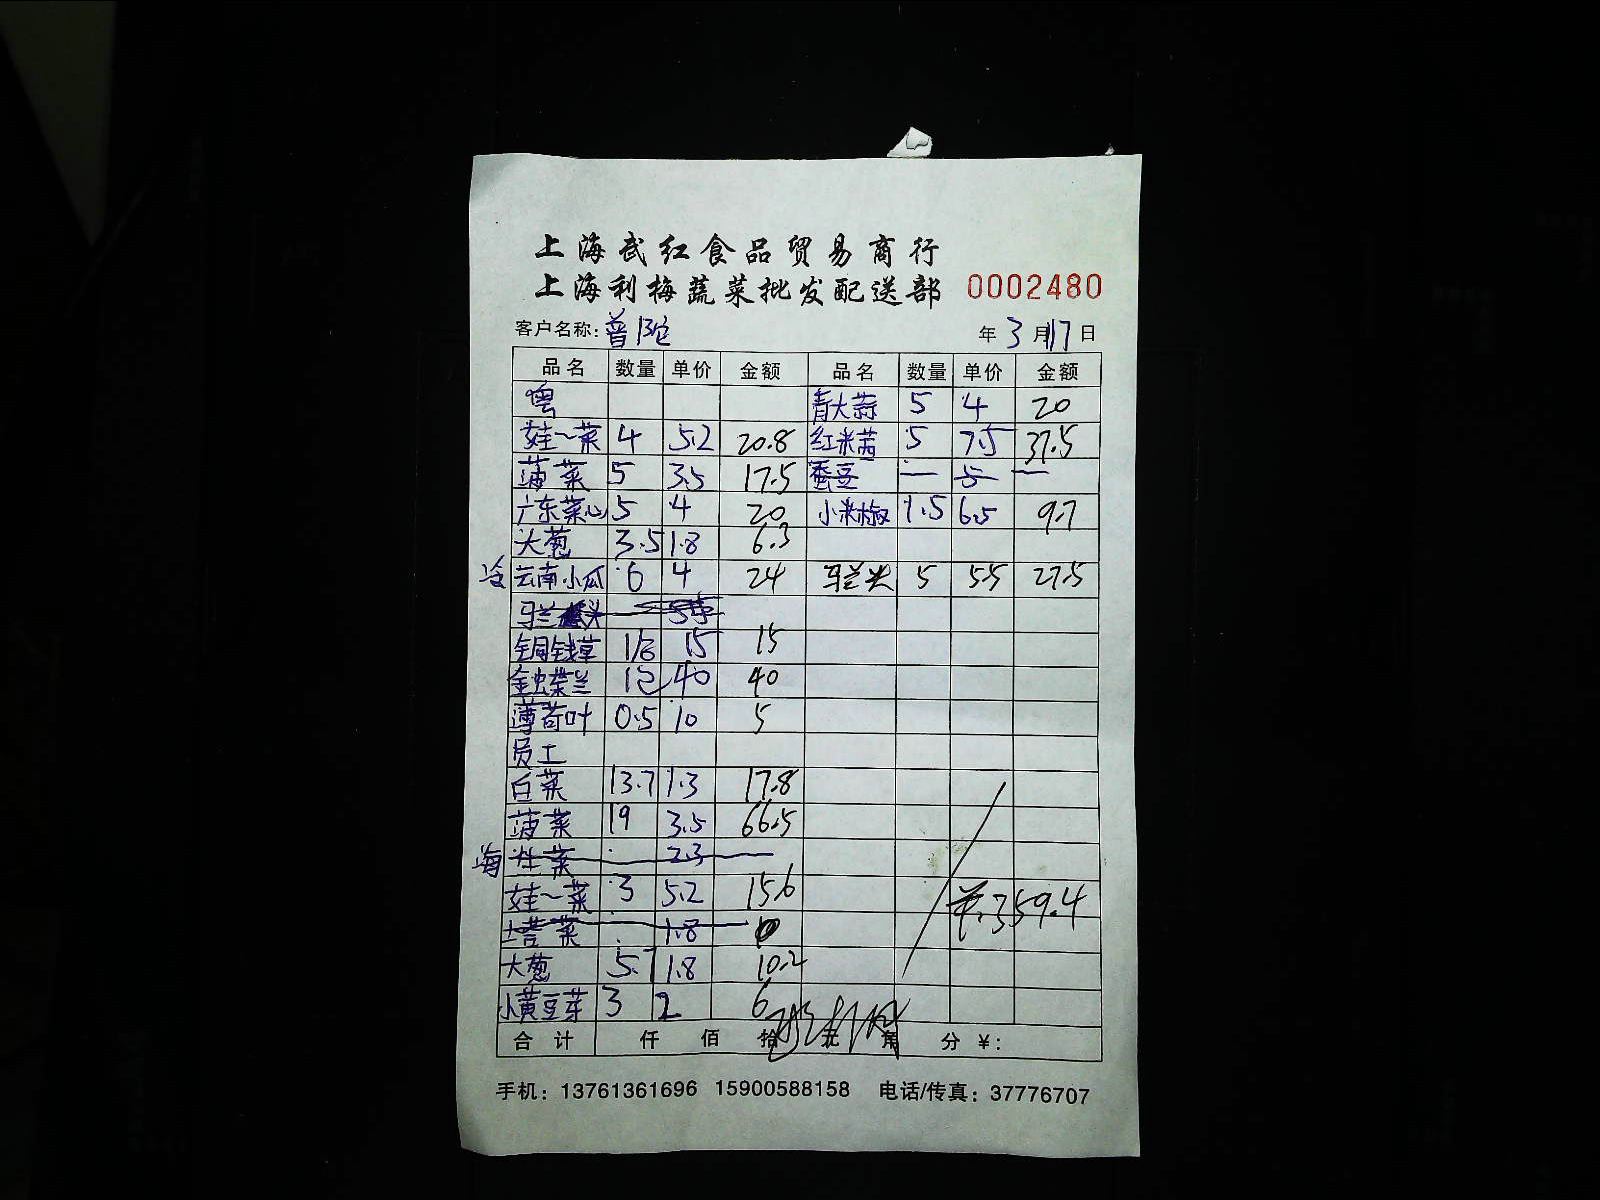 上海武红食品贸易商行
上海利梅蔬菜批发配送部 0002480
客户名称: 普陀 年 3 月 17 日
品名 数量 单价 金额 品名 数量 单价 金额
粤 青大蒜 5 4 20
娃~菜 4 5.2 20.8 红米茜 5 7.5 37.5
菠菜 5 3.5 17.5 蚕豆 — 5 —
广东菜心 5 4 20 小米椒 1.5 6.5 9.7
大葱 3.5 1.8 6.3
冷 云南小瓜 6 4 24 马兰头 5 5.5 27.5
马兰头
铜钱草 1/6 15 15
金蝶兰 1包 40 40
薄荷叶 0.5 10 5
员工
白菜 13.7 1.3 17.8
菠菜 19 3.5 66.5
海 生菜 2.3
娃~菜 3 5.2 15.6
塔菜 1.8
大葱 5.7 1.8 10.2
小黄豆芽 3 2 6
¥.359.4
合计 仟 佰 拾 元 角 分 ¥:
手机: 13761361696 15900588158 电话/传真: 37776707